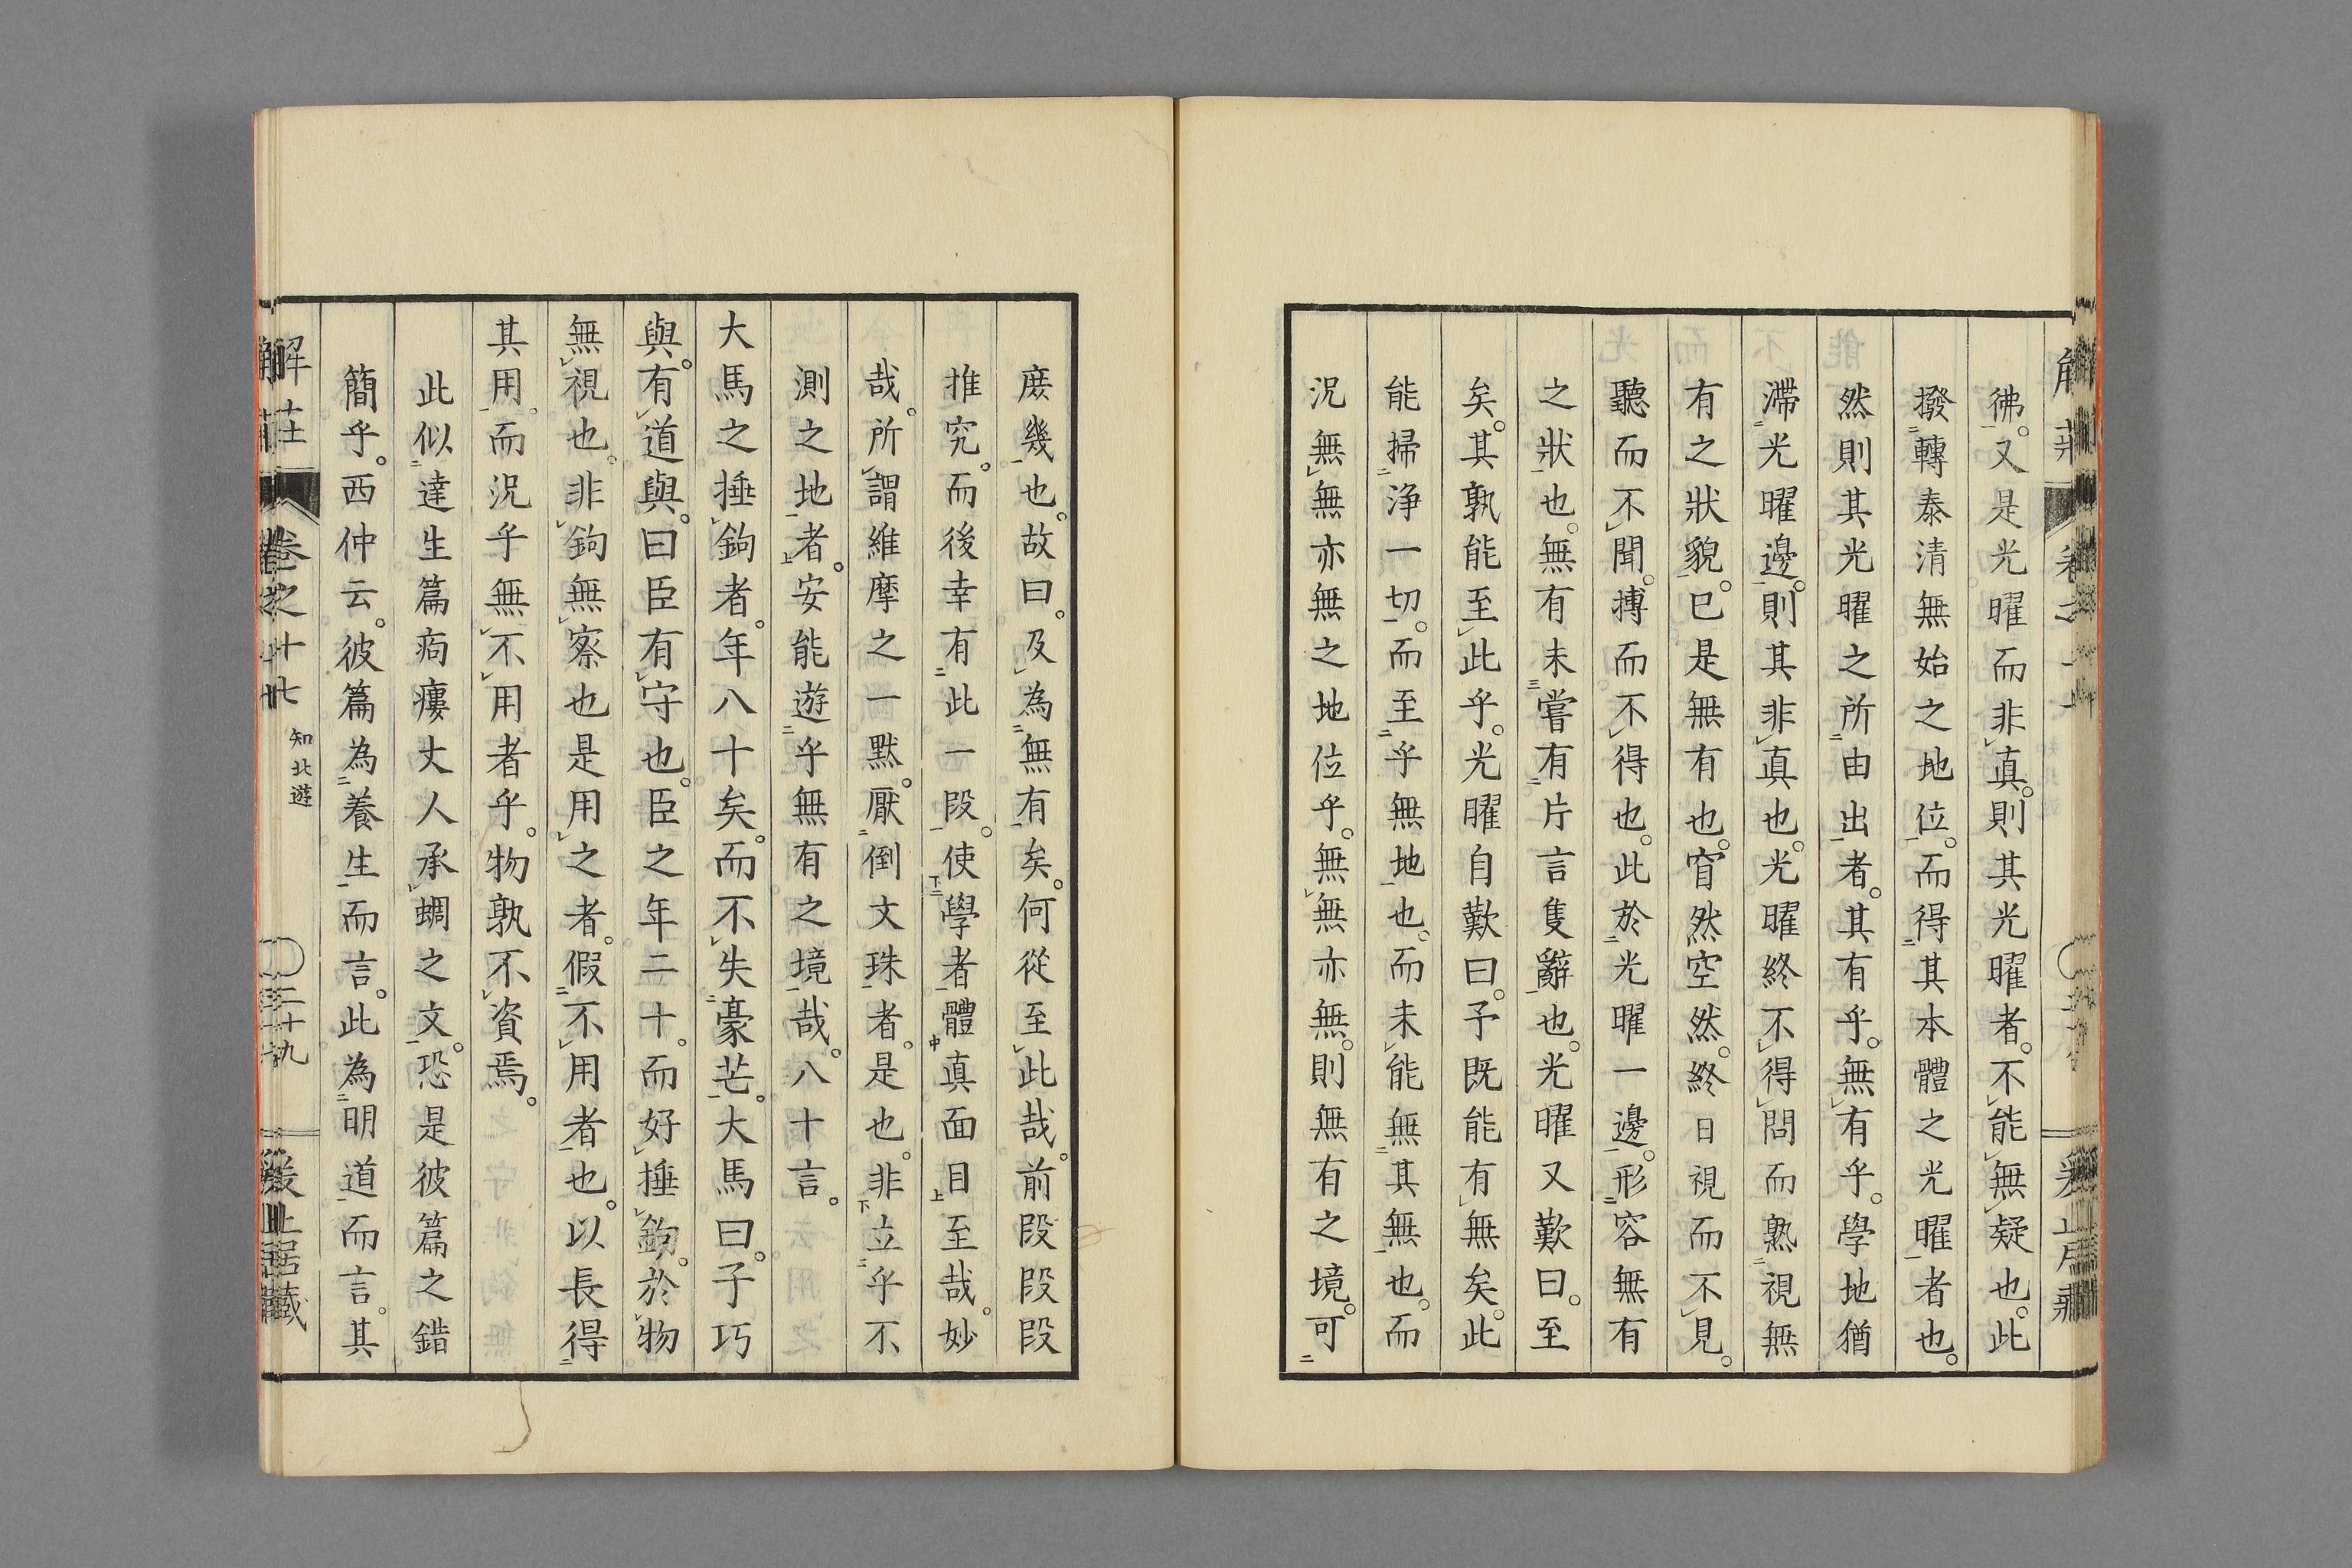 彿。又是光曜而非真。則其光曜者。不能無疑也。此
撥轉泰清無始之地位。而得其本體之光曜者也。
然則其光曜之所由出者。其有乎。無有乎。學地猶
滯光曜邊。則其非真也。光曜終不得問而熟視無
有之狀貌。已是無有也。窅然空然。終日視而不見。
聽而不聞。搏而不得也。此於光曜一邊。形容無有
之狀也。無有未嘗有片言隻辭也。光曜又歎曰。至
矣。其孰能至此乎。光曜自歎曰。予既能有無矣。此
能掃淨一切。而至乎無地也。而未能無其無也。而
況無無亦無之地位乎。無無亦無。則無有之境。可
庶幾也。故曰。及為無有矣。何從至此哉。前段段段
推究。而後幸有此一段。使學者體真面目至哉。妙
哉。所謂維摩之一默。厭倒文珠者。是也。非立乎不
測之地者。安能遊乎無有之境哉。八十言。
大馬之捶鉤者。年八十矣。而不失豪芒。大馬曰。子巧
與。有道與。曰臣有守也。臣之年二十。而好捶鉤。於物
無視也。非鉤無察也是用之者。假不用者也。以長得
其用。而況乎無不用者乎。物孰不資焉。
此似達生篇痀瘻丈人承蜩之文。恐是彼篇之錯
簡乎。西仲云。彼篇為養生而言。此為明道而言。其
解莊
卷之十七
知北遊
二十九